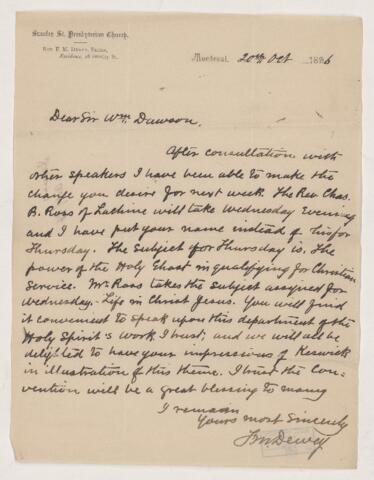 Stanley St. Presbyterian Church.
Rev. F. M. Dewey, Pastor,
Residence, Stanley St.
Montreal, 20th Oct 1896
Dear Sir Wm. Dawson,
After consultation with
other speakers I have been able to make the
change you desire for next week. The Rev. Chas.
B. Ross of Lachine will take Wednesday Evening
and I have put your name instead of his for
Thursday. The subject for Thursday is, The
power of the Holy Ghost in qualifying for Christian
Service. Mr. Ross takes the subject assigned for
Wednesday. Life in Christ Jesus. You will find
it convenient to speak upon this department of the
Holy Spirit's work I trust; and we will all be
delighted to have your impressions of Keswick
in illustration of this theme. I trust the Con-
vention will be a great blessing to many
I remain
Yours most Sincerely
F M Dewey